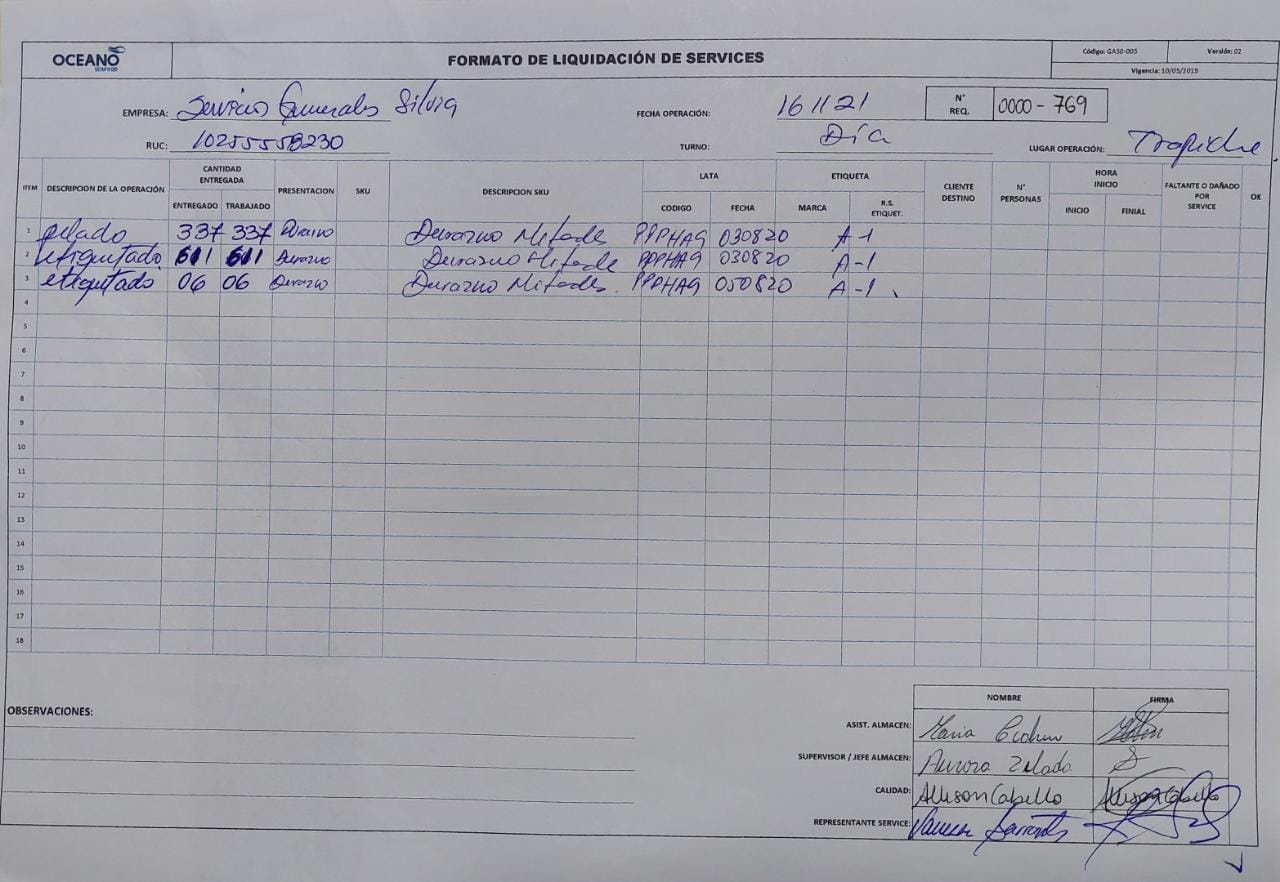 OCEANO
SEAFOOD
FORMATO DE LIQUIDACIÓN DE SERVICES
Código: GASO-003 Versión: 02
Vigencia: 10/05/2019
EMPRESA: Servicios Generales Silvia
FECHA OPERACIÓN: 16 11 21
N° REQ. 0000 - 769
RUC: 10255558230
TURNO: Día
LUGAR OPERACIÓN: Trapiche
ITEM DESCRIPCION DE LA OPERACIÓN CANTIDAD ENTREGADA PRESENTACION SKU DESCRIPCION SKU LATA ETIQUETA CLIENTE DESTINO N° PERSONAS HORA INICIO FALTANTE O DAÑADO POR SERVICE OK
ENTREGADO TRABAJADO CODIGO FECHA MARCA R.S. ETIQUET. INICIO FINIAL
1 pelado 337 337 Durazno Durazno Mitades PPPHA9 030820 A-1
2 etiquetado 611 611 Durazno Durazno Mitade PPPHA9 030820 A-1
3 etiquetado 06 06 Durazno Durazno Mitades. PPPHA9 050820 A-1
4
5
6
7
8
9
10
11
12
13
14
15
16
17
18
OBSERVACIONES:
NOMBRE FIRMA
ASIST. ALMACEN: Maria
SUPERVISOR / JEFE ALMACEN: Aurora Zelada
CALIDAD: Allison Cabello Allison Cabello
REPRESENTANTE SERVICE: Vanessa